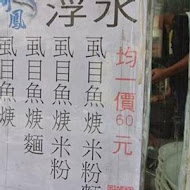 鳳
浮水
虱目魚焿
虱目魚焿麵
虱目魚焿米粉
虱目魚焿米粉麵
均一價60元